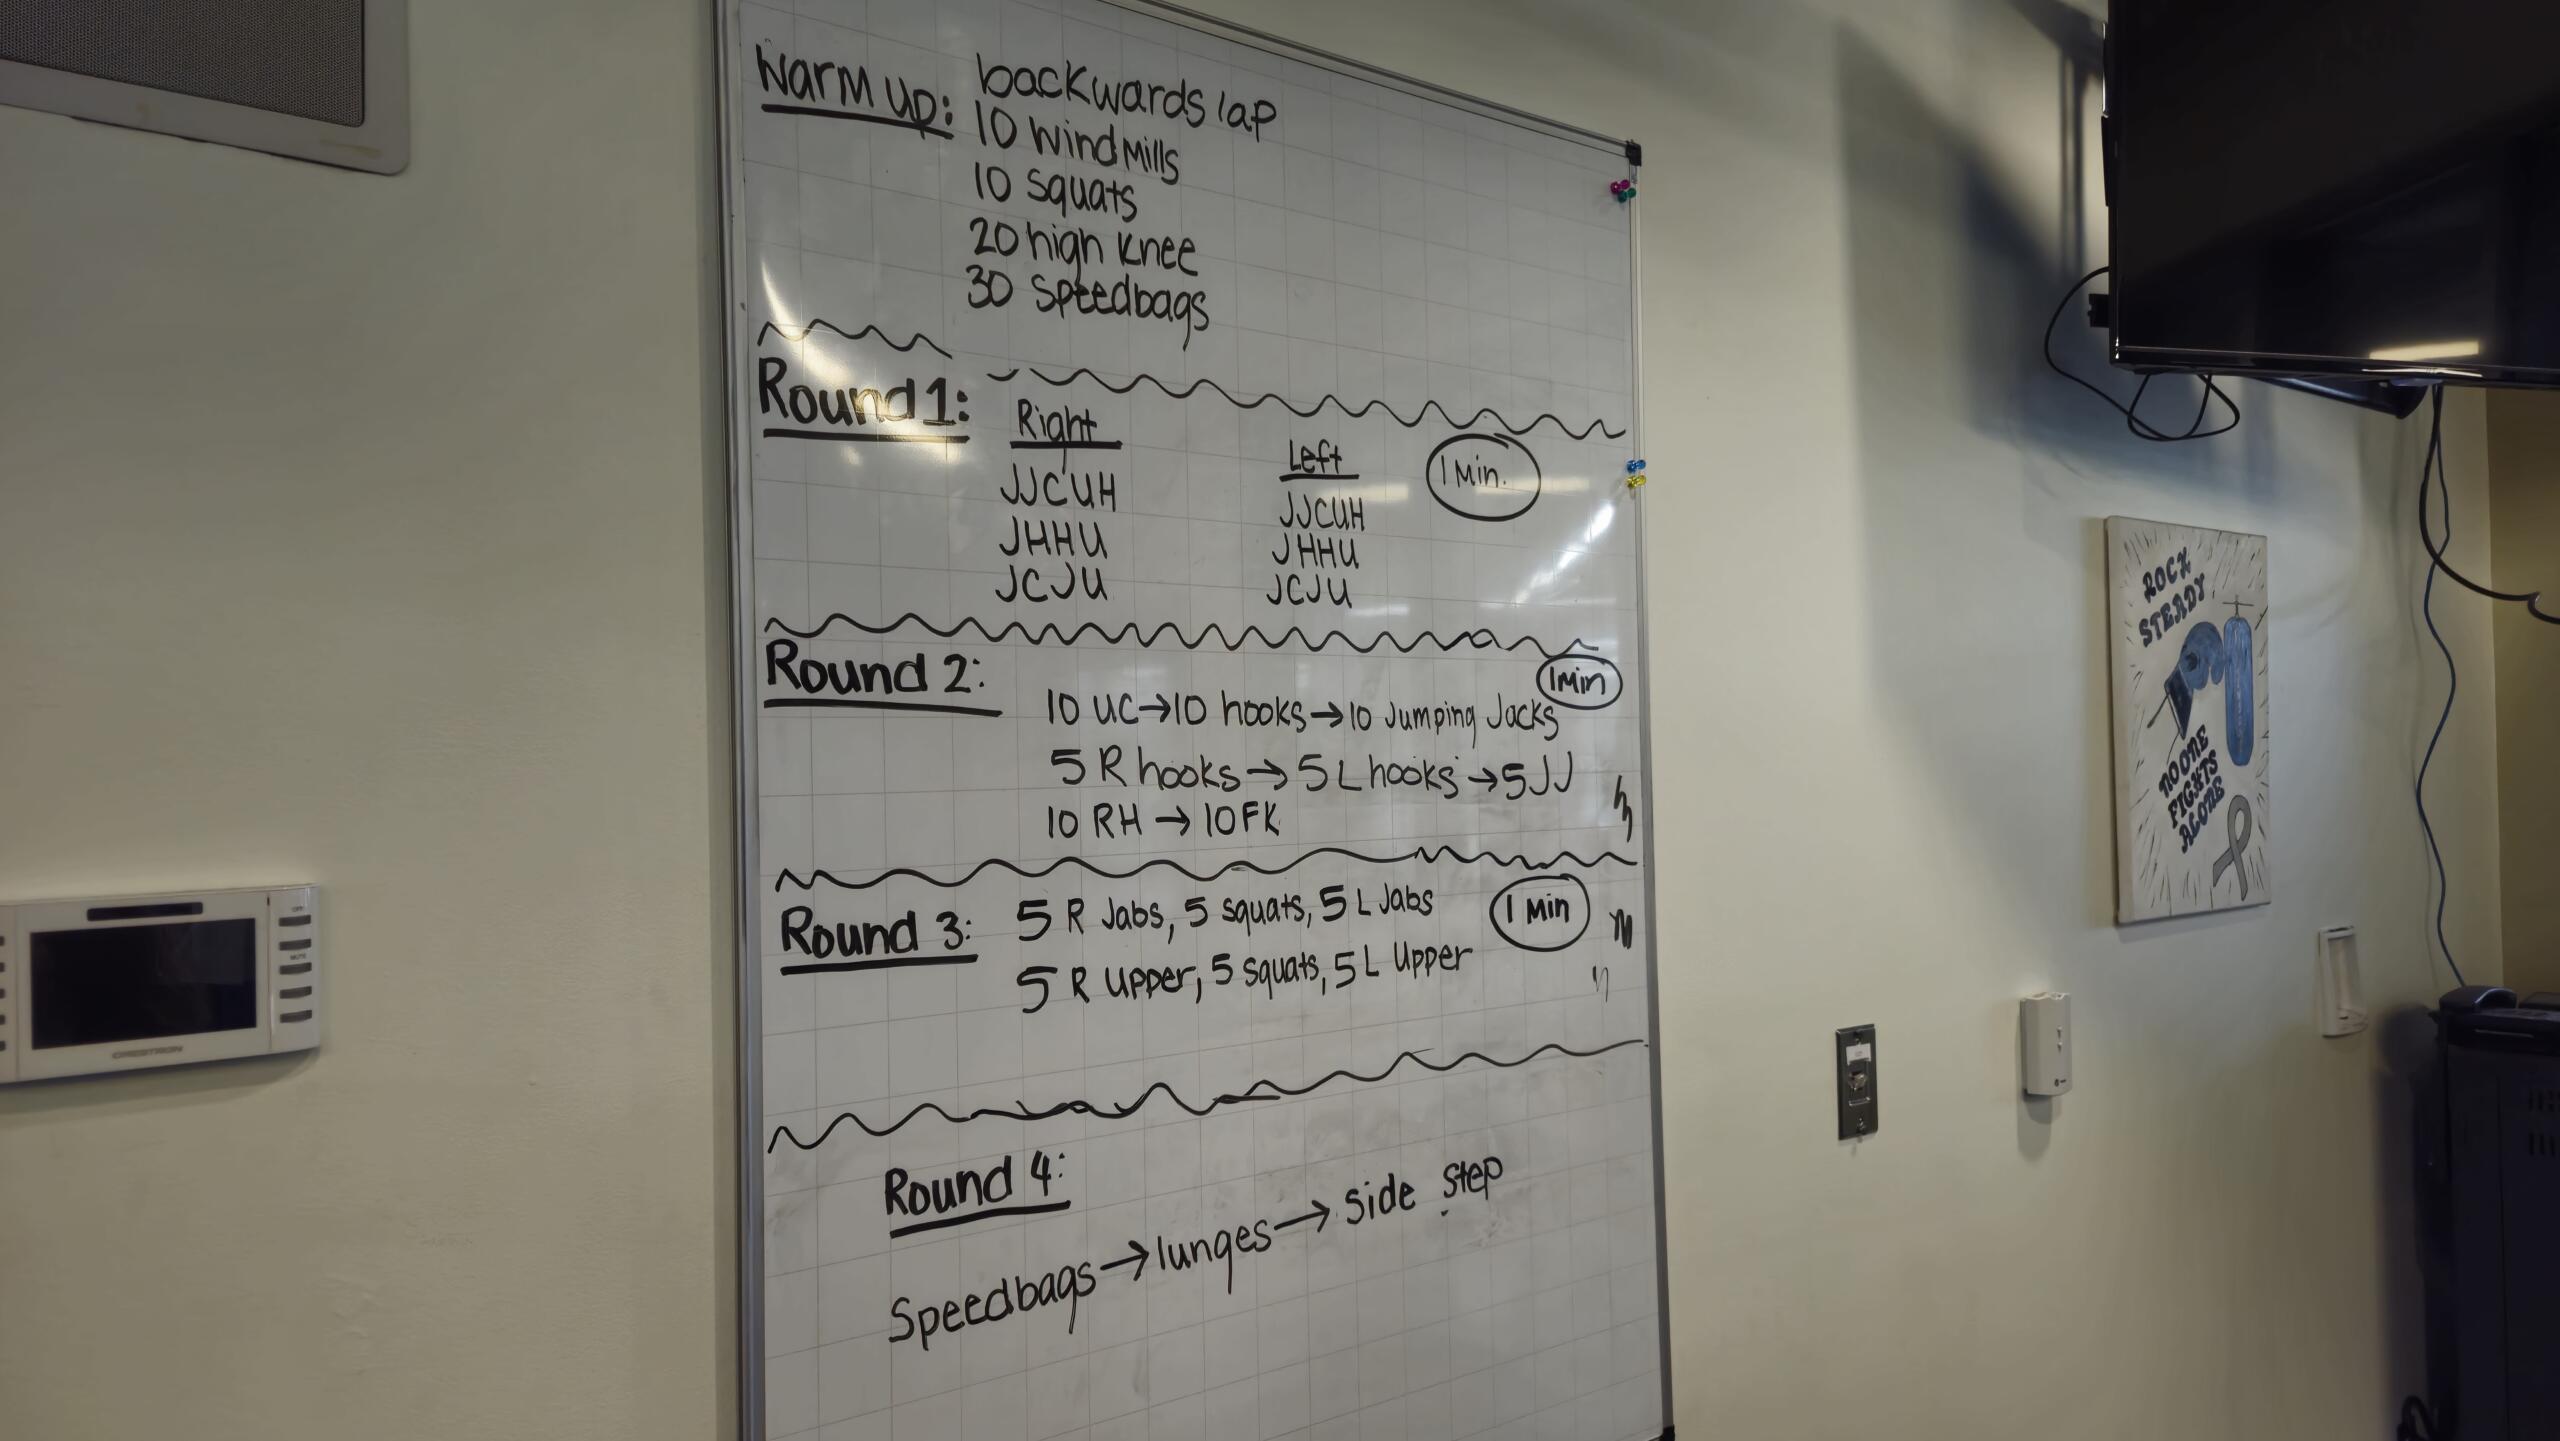 Warm up: backwards lap
10 windmills
10 squats
20 high knee
30 speedbags
Round 1:
Right
JJCUH
JHHU
JCJU
Left
JJCUH
JHHU
JCJU
1 Min.
Round 2:
1 Min
10 UC→10 hooks→10 Jumping Jacks
5 R hooks→5 L hooks→5JJ
10 RH→10FK
Round 3: 5 R Jabs, 5 squats, 5 L Jabs
5 R Upper, 5 squats, 5 L Upper
1 Min
Round 4:
Speedbags→lunges→side step
CRESTRON
ROCK
STEADY
NO ONE
FIGHTS
ALONE